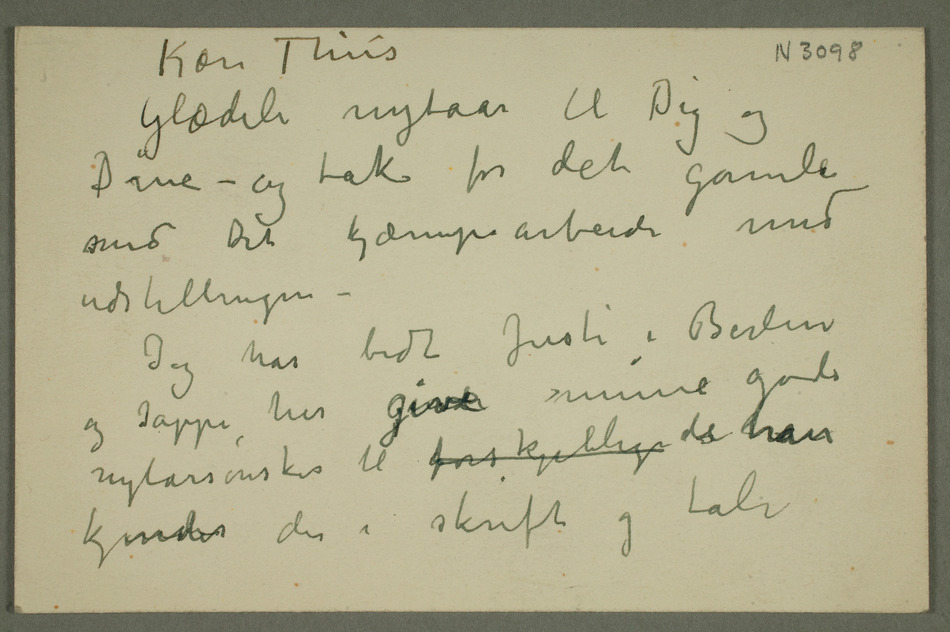 Kære Thiis
N 3098
Glædeli nytaar til Dig og
Dine – og tak for det gamle
med Det kjæmpearbeide med
udstillingen –
Jeg har bedt Justi i Berlin
og Sappe, her give mine gode
nytarsønsker til forskjellige de han
kjender der i skrift og tale